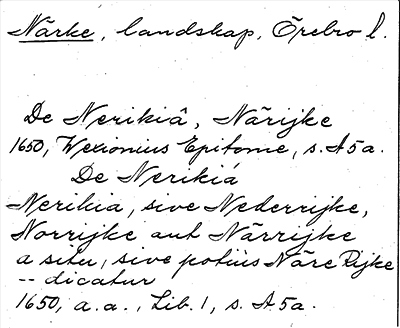 Närke, landskap, Örebro l.
De Nerikiâ, Närijke
1650, Wexionius Epitome, s. A5a.
De Nerikiá
Nerikia, sive Nederrijke,
Norrijke aut Närrijke
a situ, sive potiùs Näre Rijke
-- dicatur
1650, a.a., Lib. 1, s. A5a.